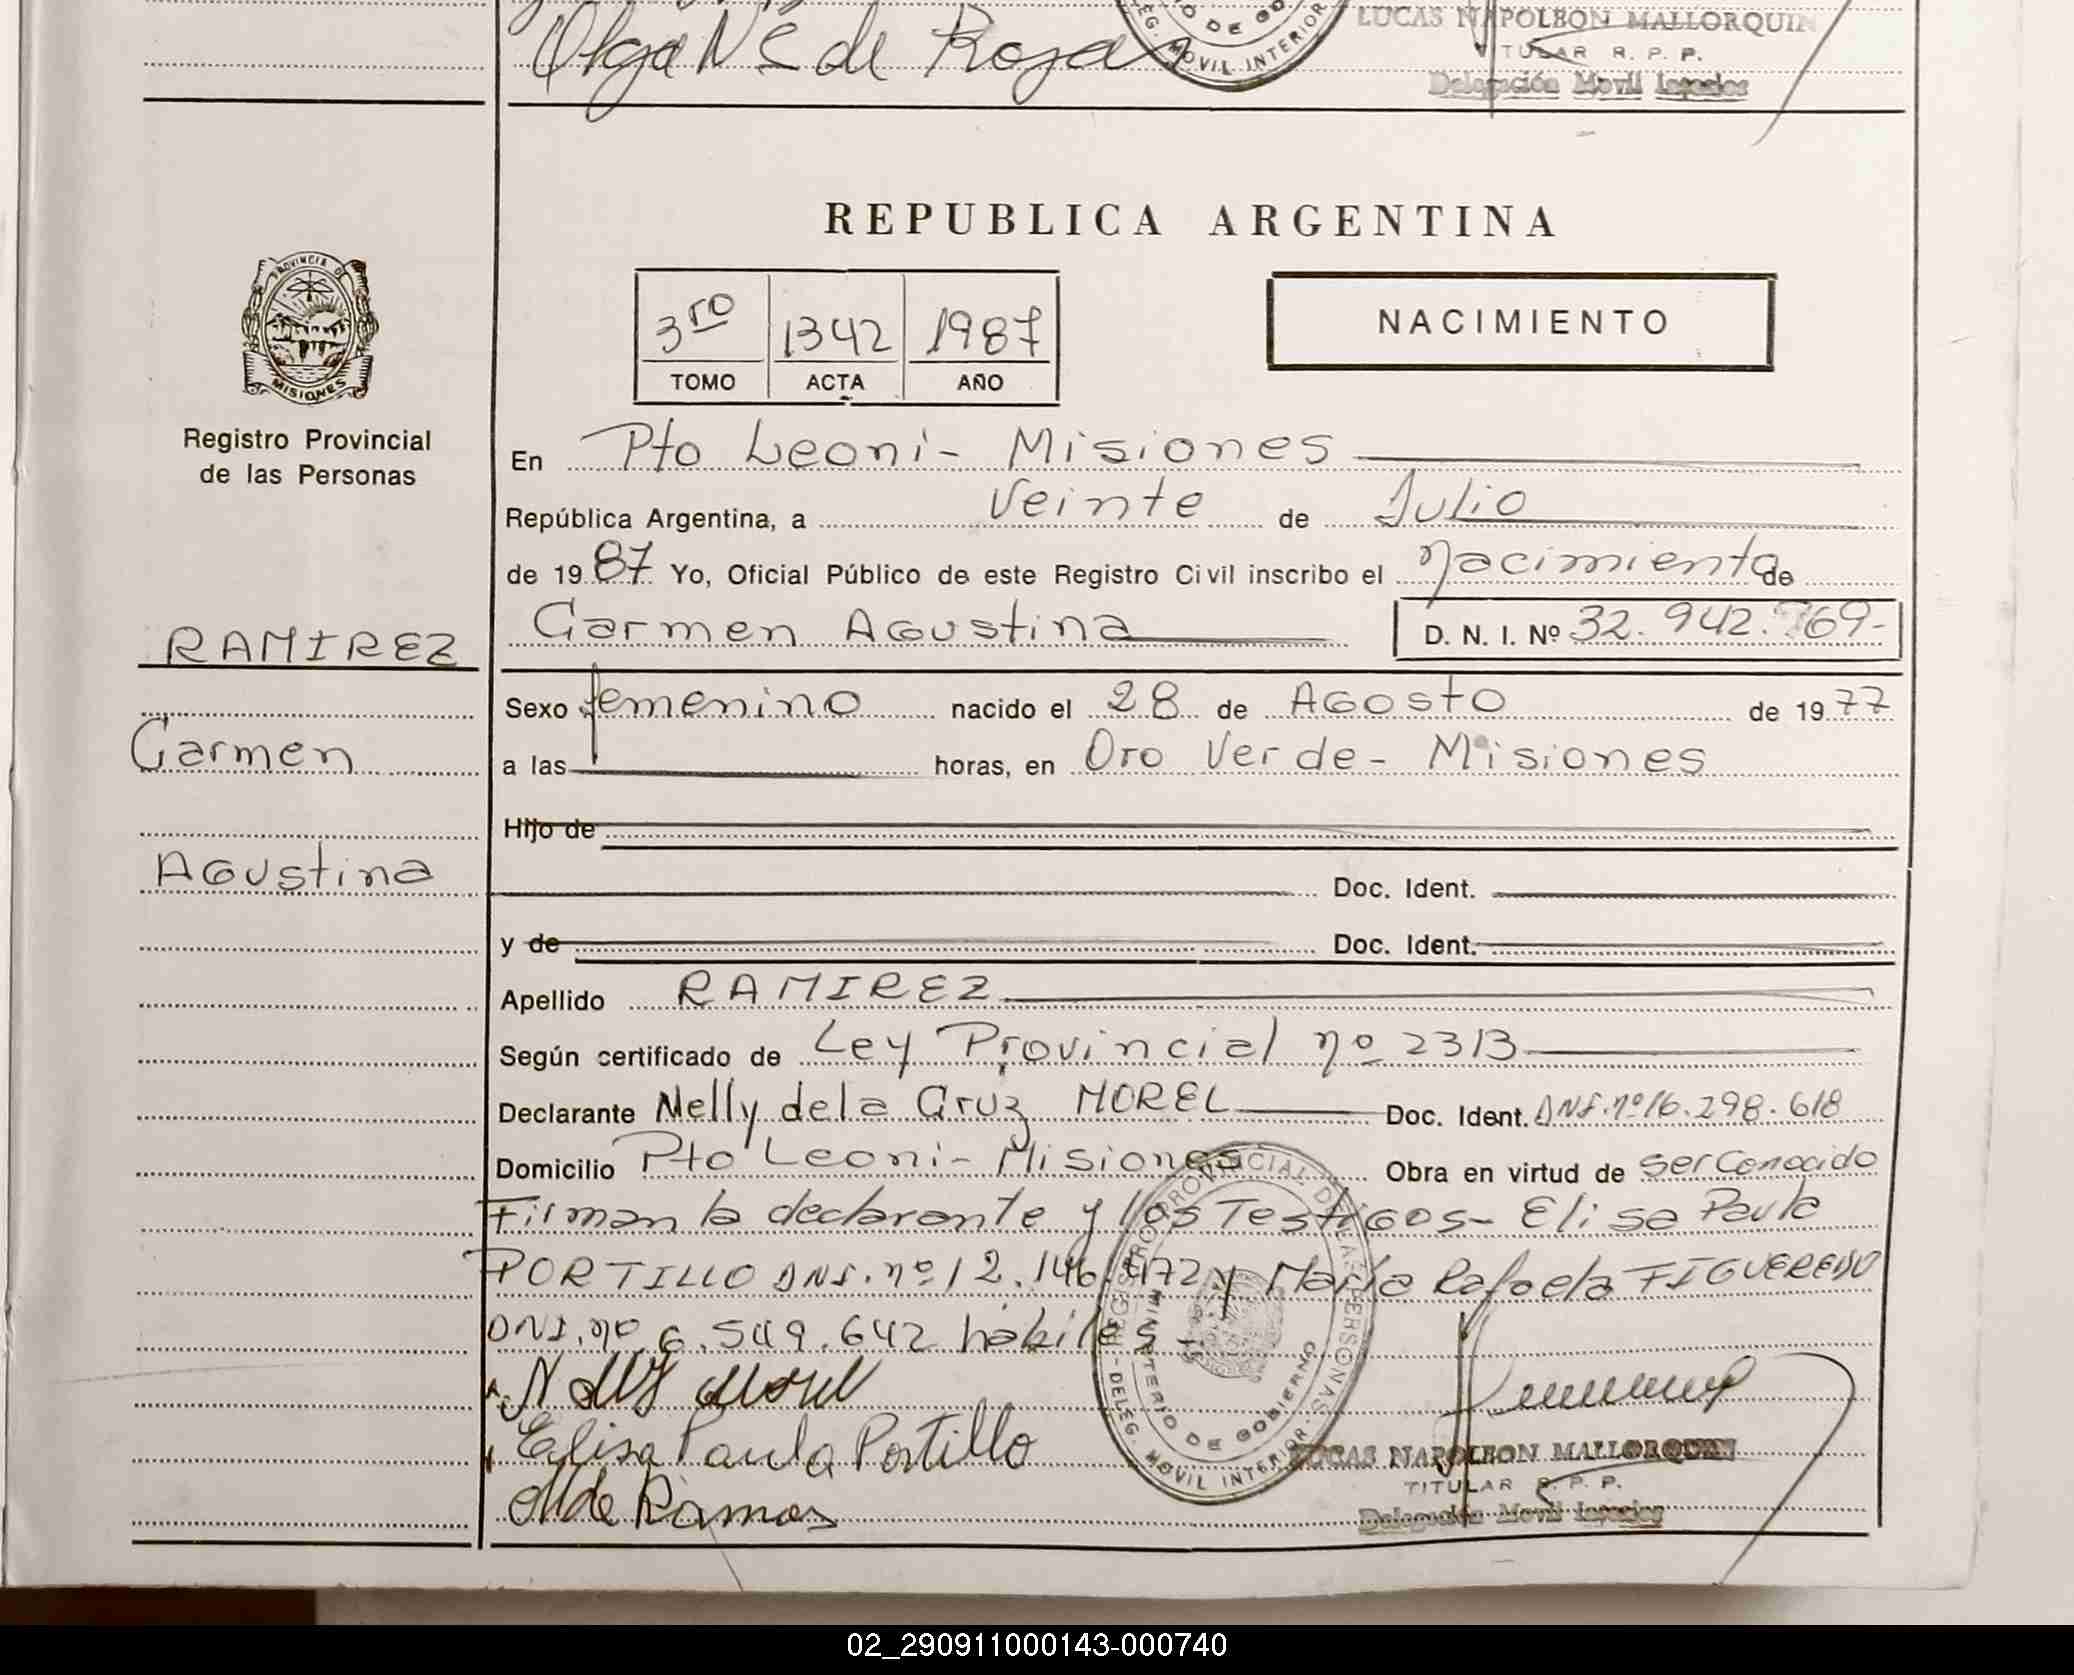 Olga N S de Roja
LUCAS NAPOLEON MALLORQUIN
TITULAR R. P. P.
Delegación Movil Interior
MOVIL INTERIOR
REPUBLICA ARGENTINA
PROVINCIA DE
MISIONES
3ro 1342 1987
TOMO ACTA AÑO
NACIMIENTO
Registro Provincial
de las Personas
En Pto Leoni - Misiones
República Argentina, a veinte de Julio
de 1987 Yo, Oficial Público de este Registro Civil inscribo el nacimiento de
RAMIREZ
Carmen Agustina D. N. I. Nº 32.942.769-
Sexo femenino nacido el 28 de Agosto de 1977
Carmen
a las horas, en Oro Verde - Misiones
Hijo de
Agustina
Doc. Ident.
y de Doc. Ident.
Apellido RAMIREZ
Según certificado de Ley Provincial nº 2313
Declarante Nelly dela Cruz MOREL Doc. Ident. DNI. nº 16.298.618
Domicilio Pto Leoni - Misiones Obra en virtud de ser Conocido
Firman la declarante y los Testigos - Elisa Paula
PORTILLO DNI. nº 12.146.172 y María Rafaela FIGUEREDO
DNI. nº 6.549.642 hábiles
Nelly Morel
Elisa Paula Portillo
M de Ramos
REGISTRO PROVINCIAL DE LAS PERSONAS - DELEG. MOVIL INTERIOR -
MINISTERIO DE GOBIERNO
LUCAS NAPOLEON MALLORQUIN
TITULAR R. P. P.
Delegación Movil Interior
02_290911000143-000740